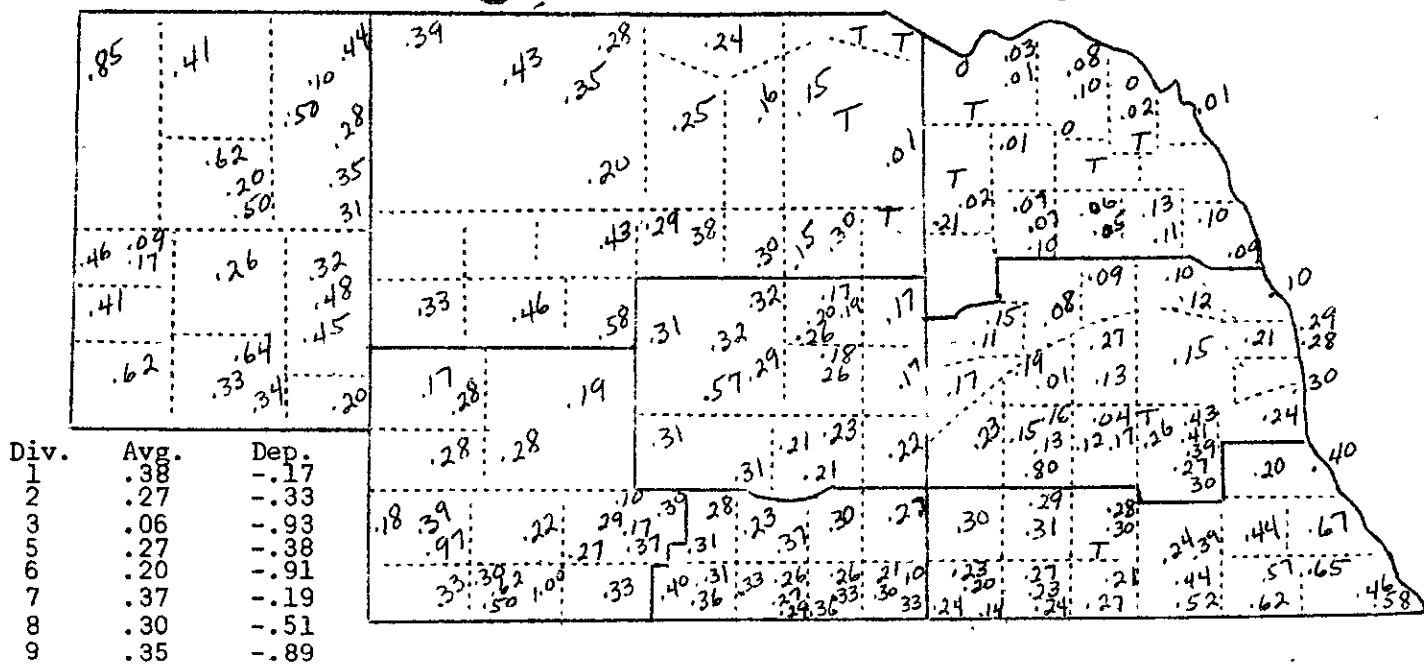 .85 .41 .44 .39 .43 .28 .24 T T 0 .03 .08
.10 .35 .01 .10 0 .02 .01
.50 .28 .25 .16 .15 T T
.62 .20 .50 .35 .31 .20 .01 .01 0 T T
T .02 .21 .09 .07 .10 .06 .05 .13 .11 .10 .09
.46 .09 .17 .26 .32 .43 .29 38 .30 .15 .30 T
.41 .48 .45 .33 .46 .58 .31 .32 .32 .17 .20 .19 .26 .17 .15 .11 .08 .09 .10 .12 .10
.29 .28
.62 .64 .33 .34 .20 .17 .28 .19 .57 .29 .18 26 .17 .17 .19 .01 .27 .13 .15 .21 .30
.28 .28 .31 .31 .21 .23 .21 .22 .23 .15 .16 .13 .80 .04 .12 .17 T .26 .43 .41 .39 .27 30 .24
.20 .40
.18 .39 .97 .22 .10 29 .17 .27 .37 .39 .31 28 .23 .37 .30 .27 .30 .29 .31 .28 .30 T .24 39 .44 .67
.33 .39 .62 .50 1.00 .33 .40 .31 .36 .33 .26 .27 .29 .36 .26 .33 .21 .30 10 33 .24 .23 .20 .14 .27 .23 .24 .21 .27 .44 .52 .57 .62 .65 .46 .58
Div. Avg. Dep.
1 .38 -.17
2 .27 -.33
3 .06 -.93
5 .27 -.38
6 .20 -.91
7 .37 -.19
8 .30 -.51
9 .35 -.89